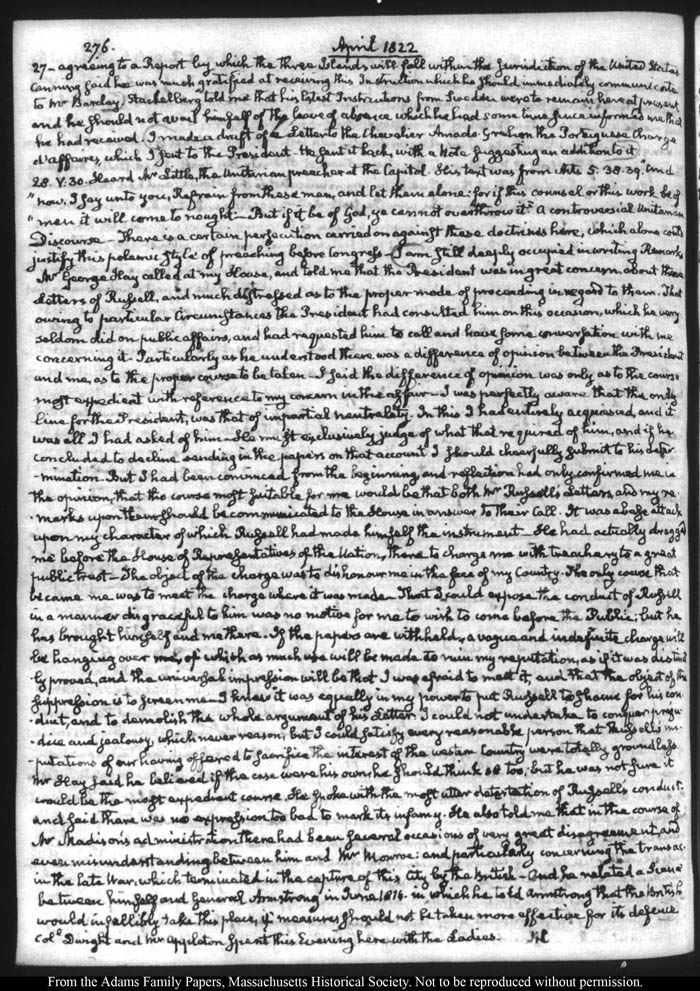 276.
April 1822
27 - agreeing to a Report by which the three Islands will fall within the Jurisdiction of the United States
Canning said he was much gratified at receiving this Instruction which he should immediately communicate
to Mr Barclay. Stackelberg told me that his latest Instructions from Sweden were to remain here at present
and he should not avail himself of the leave of absence which he had some time since informed me that
he had received. I made a draft of a Letter to the Chevalier Amado Grehon the Portuguese Chargé
d'affaires, which I sent to the President. He sent it back, with a Note suggesting an addition to it.
28. V:30. Heard Mr Little, the Unitarian preacher at the Capitol. His text was from Acts 5. 38.39. "And
"now, I say unto you, Refrain from these men, and let them alone: for if this counsel or this work be of
"men it will come to nought:— But if it be of God, ye cannot overthrow it" A controversial Unitarian
Discourse — There is a certain persecution carried on against these doctrines here, which alone could
justify this polemic style of preaching before Congress — I am still deeply occupied in writing Remarks
Mr George Hay called at my House, and told me that the President was in great concern about these
Letters of Russell, and much distressed as to the proper mode of proceeding in regard to them. That
owing to particular Circumstances the President had consulted him on this occasion, which he very
seldom did on public affairs, and had requested him to call and have some conversation with me
concerning it. Particularly as he understood there was a difference of opinion between the President
and me, as to the proper course to be taken — I said the difference of opinion was only as to the course
most expedient with reference to my concern in this affair — I was perfectly aware that the only
line for the President, was that of impartial neutrality. In this I had entirely acquiesced, and it
was all I had asked of him — He must exclusively judge of what that required of him, and if he
concluded to decline sending in the papers on that account I should cheerfully submit to his deter-
-mination. But I had been convinced from the beginning, and reflection had only confirmed me in
the opinion, that the course most suitable for me would be that both Mr Russell's Letters, and my re-
-marks upon them should be communicated to the House in answer to their Call. It was a base attack
upon my character of which Russell had made himself the instrument — He had actually dragged
me before the House of Representatives of the Nation, there to charge me with treachery to a great
public trust — The object of the charge was to dishonour me in the face of my Country. The only course that
became me was to meet the charge where it was made. That I could expose the conduct of Russell
in a manner disgraceful to him was no motive for me to wish to come before the Public; but he
has brought himself and me there. If the papers are withheld, a vague and indefinite charge will
be hanging over me, of which as much use will be made to ruin my reputation, as if it was distinct-
-ly proved, and the universal impression will be that I was afraid to meet it, and that the object of the
suppression is to screen me — I knew it was equally in my power to put Russell to shame for his con-
-duct, and to demolish the whole argument of his Letter. I could not undertake to conquer preju-
-dice and jealousy, which never reason; but I could satisfy every reasonable person that Russell's im-
-putations of our having offered to sacrifice the interest of the western Country were totally groundless
Mr Hay said he believed if the case were his own he should think so too; but he was not sure it
would be the most expedient course. He spoke with the most utter detestation of Russell's conduct
and said there was no expression too bad to mark its infamy. He also told me that in the course of
Mr Madison's administration there had been several occasions of very great disagreement, and
even misunderstanding between him and Mr Monroe: and particularly concerning the transac.
in the late War, which terminated in the capture of this city by the British — And he related a Scene
between himself and General Armstrong in June 1814. in which he told Armstrong that the British
would infallibly take this place, if measures should not be taken more effective for its defence
Colo Dwight and Mr Appleton spent this Evening here with the Ladies.
From the Adams Family Papers, Massachusetts Historical Society. Not to be reproduced without permission.